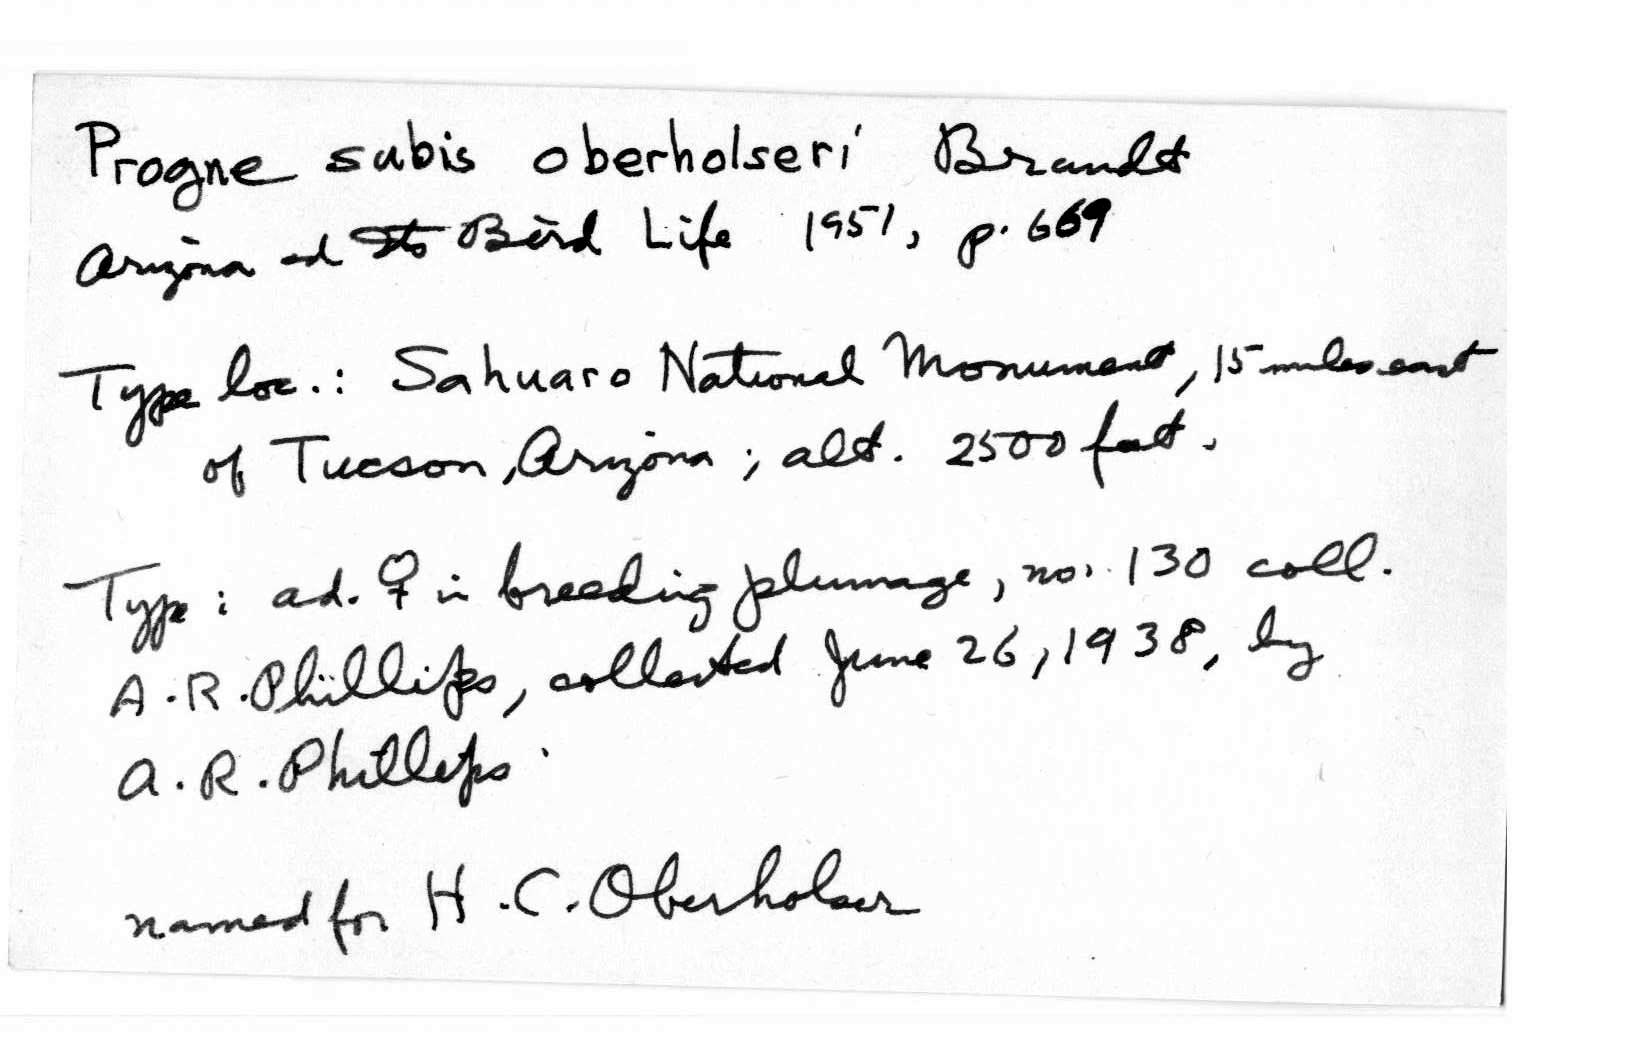 Progne subis oberholseri Brandt
Arizona ad Its Bird Life 1951, p. 669
Type loc.: Sahuaro National Monument, 15 miles east
of Tucson, Arizona; alt. 2500 feet.
Type: ad. ♀ in breeding plumage, no. 130 coll.
A.R. Phillips, collected June 26, 1938, by
A.R. Phillips.
named for H.C. Oberholser